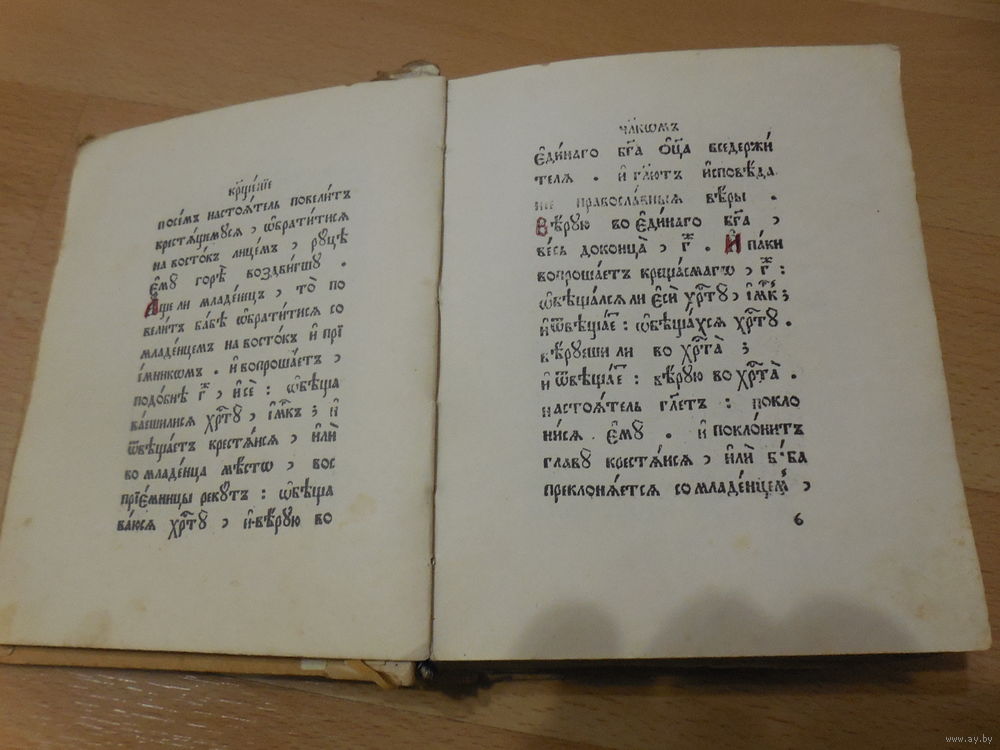 крⷭ҇щенїе
посе́мъ настоѧ́тель повели́тъ
крестѧ́щимꙋсѧ , ѡ҆брати́тисѧ
на восто́къ лицѐмъ , рꙋцѣ
є҆мꙋ̀ горѣ̀ воздви́гшꙋ .
А҆́ще ли младе́нецъ , то̀ по
вели́тъ ба́бѣ ѡ҆брати́тисѧ со
младе́нцемъ на восто́къ и҆ прї
є́мникѡмъ . и҆ вопроша́етъ ,
подо́бнѣ г҃ , и҆сѐ : ѡ҆бѣща
ва́ешилисѧ хрⷭ҇тꙋ̀ , і҆мⷬ҇къ ; и҆
ѿвѣща́етъ крестѧ́йсѧ , и҆лѝ
во младе́нца мѣ́стѡ , вос
прїе́мницы рекꙋ́тъ : ѡ҆бѣща
ва́юсѧ хрⷭ҇тꙋ̀ , и҆ вѣ́рꙋю во
чл҃кѡмъ
є҆ди́наго бг҃а ѻ҆ц҃а̀ вседержи́
телѧ . и҆ гл҃ютъ и҆сповѣ́да
нїе правосла́вныѧ вѣ́ры .
Вѣ́рꙋю во є҆ди́наго бг҃а ,
ве́сь доконца̀ , г҃ . И҆ па́ки
вопроша́етъ креща́емагѡ , г҃ :
ѡ҆бѣща́лсѧ ли є҆сѝ хрⷭ҇тꙋ̀ , і҆мⷬ҇къ ;
и҆ ѿвѣща́е : ѡ҆бѣща́хсѧ хрⷭ҇тꙋ̀ .
вѣ́рꙋеши ли во хрⷭ҇та̀ ;
и҆ ѿвѣща́е : вѣ́рꙋю во хрⷭ҇та̀ .
настоѧ́тель гл҃етъ : покло
ни́сѧ є҆мꙋ̀ . и҆ поклони́тъ
главꙋ̀ крестѧ́йсѧ , и҆лѝ ба́ба
преклонѧ́етсѧ со младе́нцемъ ,
6
www.ay.by